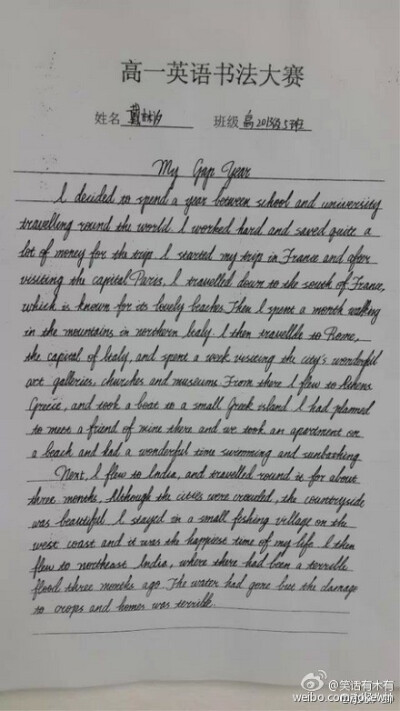 高一英语书法大赛
姓名 戴 班级 高2015级5班
My Gap Year
I decided to spend a year between school and university
travelling round the world. I worked hard and saved quite a
lot of money for the trip. I started my trip in France and after
visiting the capital Paris, I travelled down to the south of France,
which is known for its lovely beaches. Then I spent a month walking
in the mountains in northern Italy. I then travellde to Rome,
the capital of Italy, and spent a week visiting the city's wonderful
art galleries, churches and museums. From there I flew to Athens
Greece, and took a boat to a small Greek island I had planned
to meet a friend of mine there and we took an apartment on
a beach and had a wonderful time swimming and sunbathing.
Next, I flew to India, and travelled round is for about
three months. Although the cities were crowded, the countryside
was beautiful I stayed in a small fishing village on the
west coast and it was the happiest time of my life I then
flew to northeast India, where there had been a terrible
flood three months ago. The water had gone but the damage
to crops and homes was terrible.
@笑话有木有
weibo.com/jokewiki